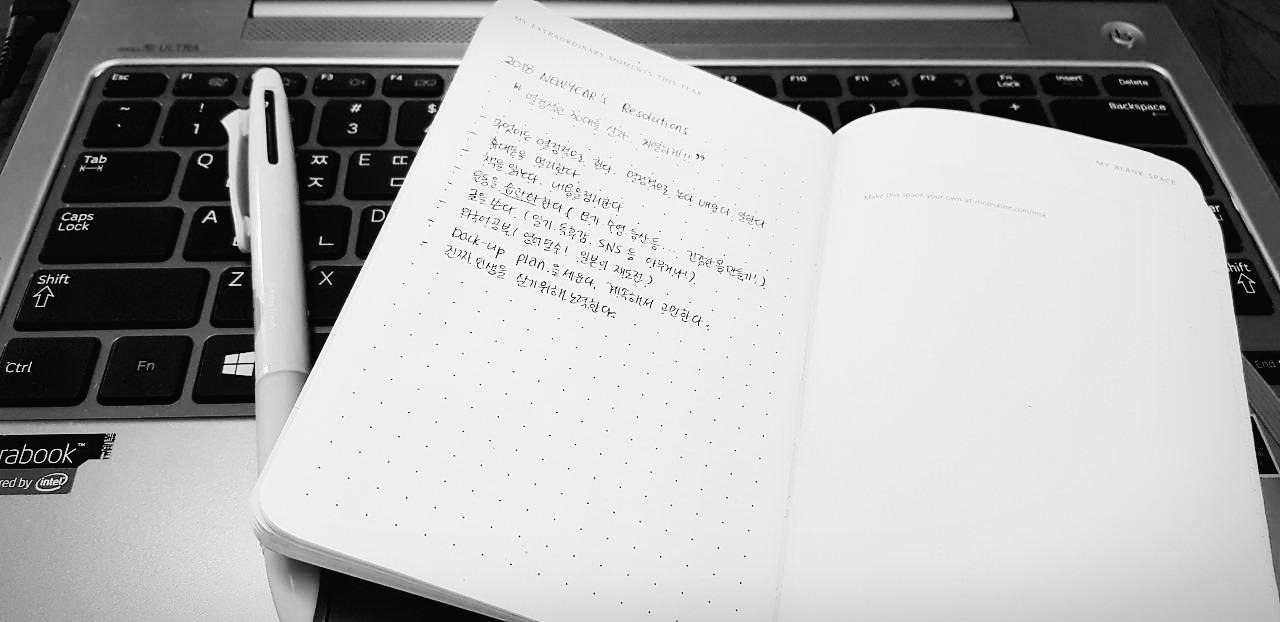 MY EXTRAORDINARY MOMENTS THIS YEAR
2018 NEWYEAR's Resolutions
" 열정적인 20대를 산자 치열하게!! "
- 무엇이든 열정적으로 한다. 열정적으로 놀다 배운다. 일한다
- 휴대폰을 멀리한다.
- 책을 읽는다. 내용을 정리한다.
- 운동을 습관화한다 ( 요가 수영 등산 등... 건강한 몸 만들기!)
- 글을 쓴다. ( 일기 독후감, SNS 등 아무거나!)
- 외국어공부( 영어필수! 일본어 재도전)
- Back-up plan.을 세운다. 계속해서 고민한다.
- 진짜 인생을 살기위해 노력한다.
MY BLANK SPACE
Make this space your own at moleskine.com/msk
ULTRA
Esc F1 F3 F4 F9 F10 F11 F12 Fn Lock Insert Delete
~ ` ! 1 # 3 $ ( ) + Backspace
Tab Q ㅉ ㅈ E ㄸ
Caps Lock A ㄴ D
Shift Z X Shift
Ctrl Fn End
rabook™
red by intel